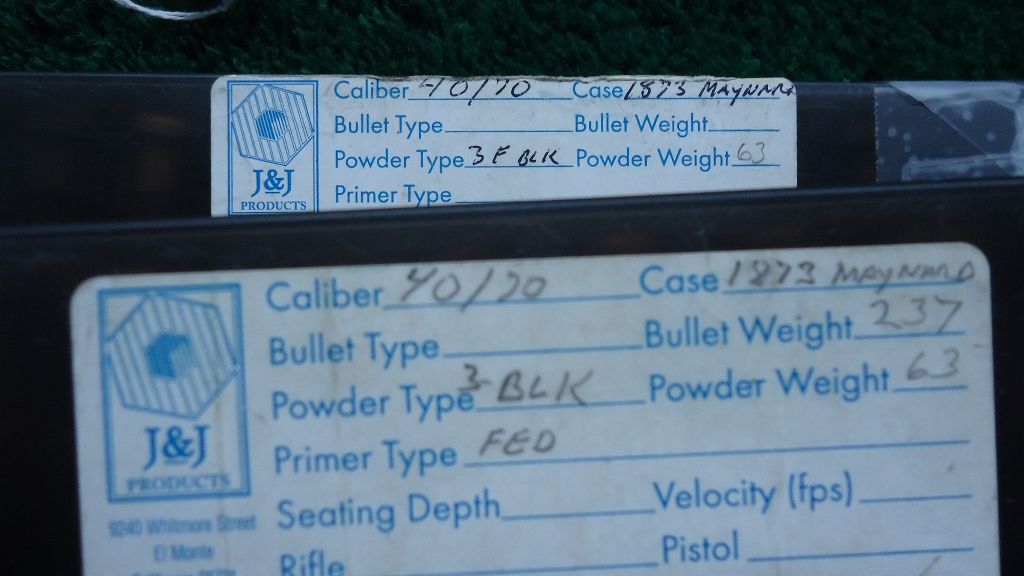 Caliber 40/70 Case 1873 MAYNARD
Bullet Type Bullet Weight
Powder Type 3 F BLK Powder Weight 63
Primer Type
J&J
PRODUCTS
Caliber 40/70 Case 1873 MAYNARD
Bullet Type Bullet Weight 237
Powder Type 3 BLK Powder Weight 63
Primer Type FED
Seating Depth Velocity (fps)
Rifle Pistol
J&J
PRODUCTS
9240 Whitmore Street
El Monte